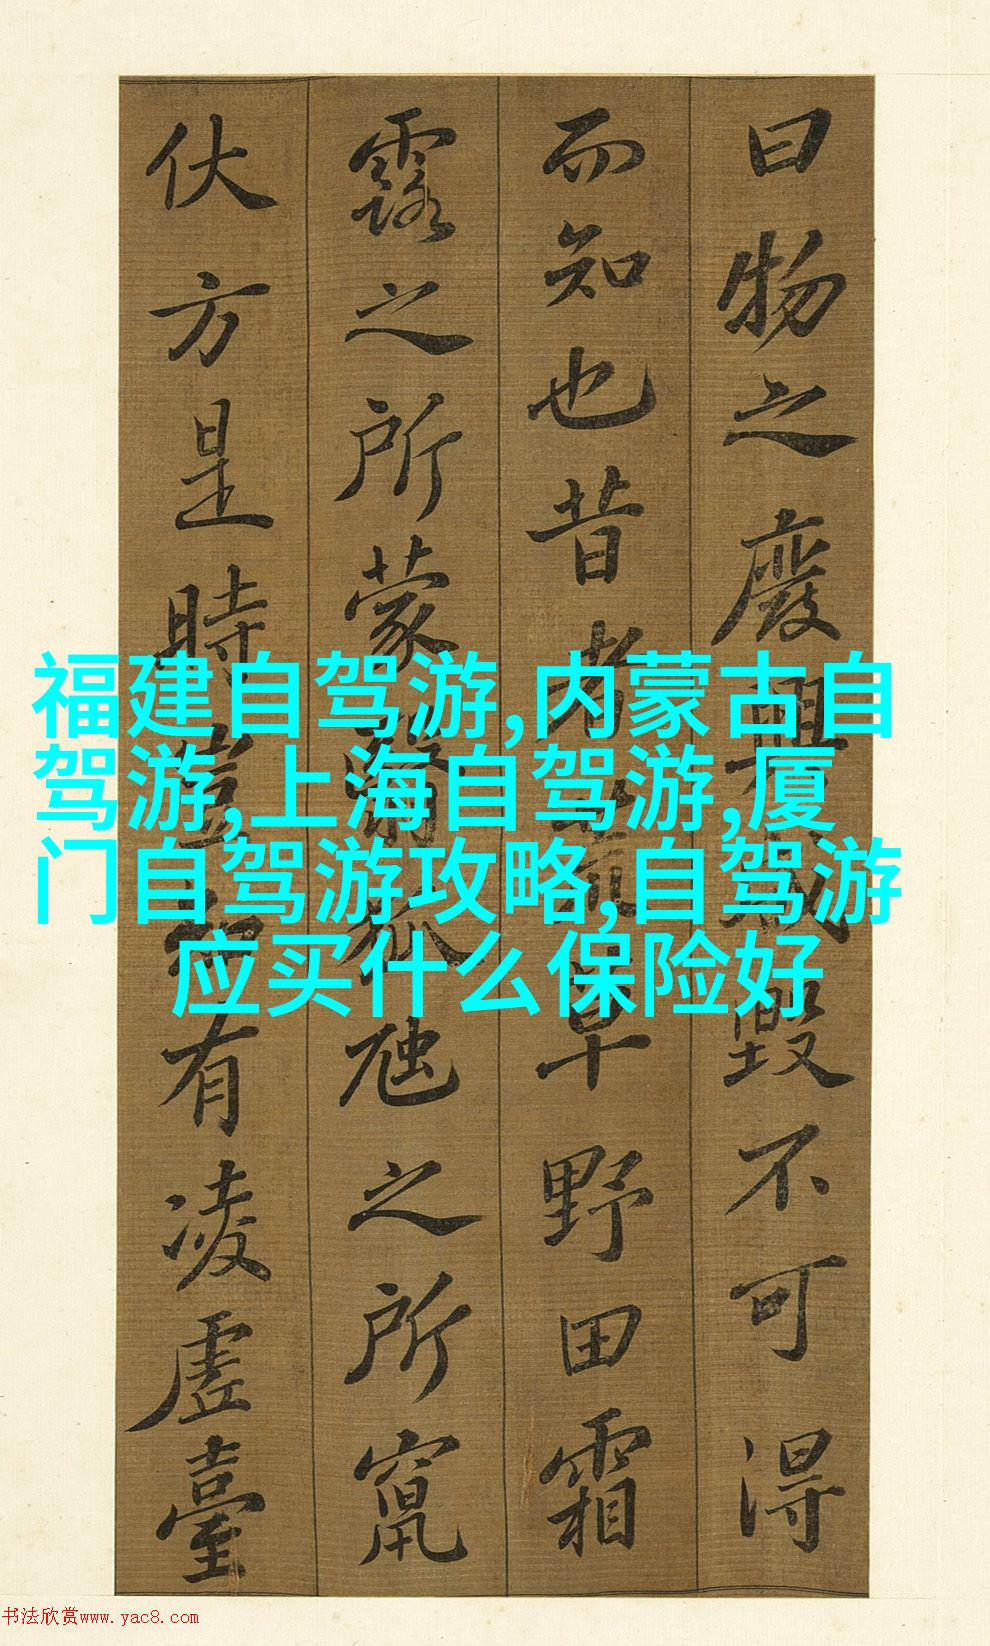 曰物之廢興成毀不可得
而知也昔者荒草野田霜
露之所蒙翳狐虺之所竄
伏方是時豈知有凌虛臺
福建自驾游,内蒙古自
驾游,上海自驾游,厦
门自驾游攻略,自驾游
应买什么保险好
书法欣赏www.yac8.com